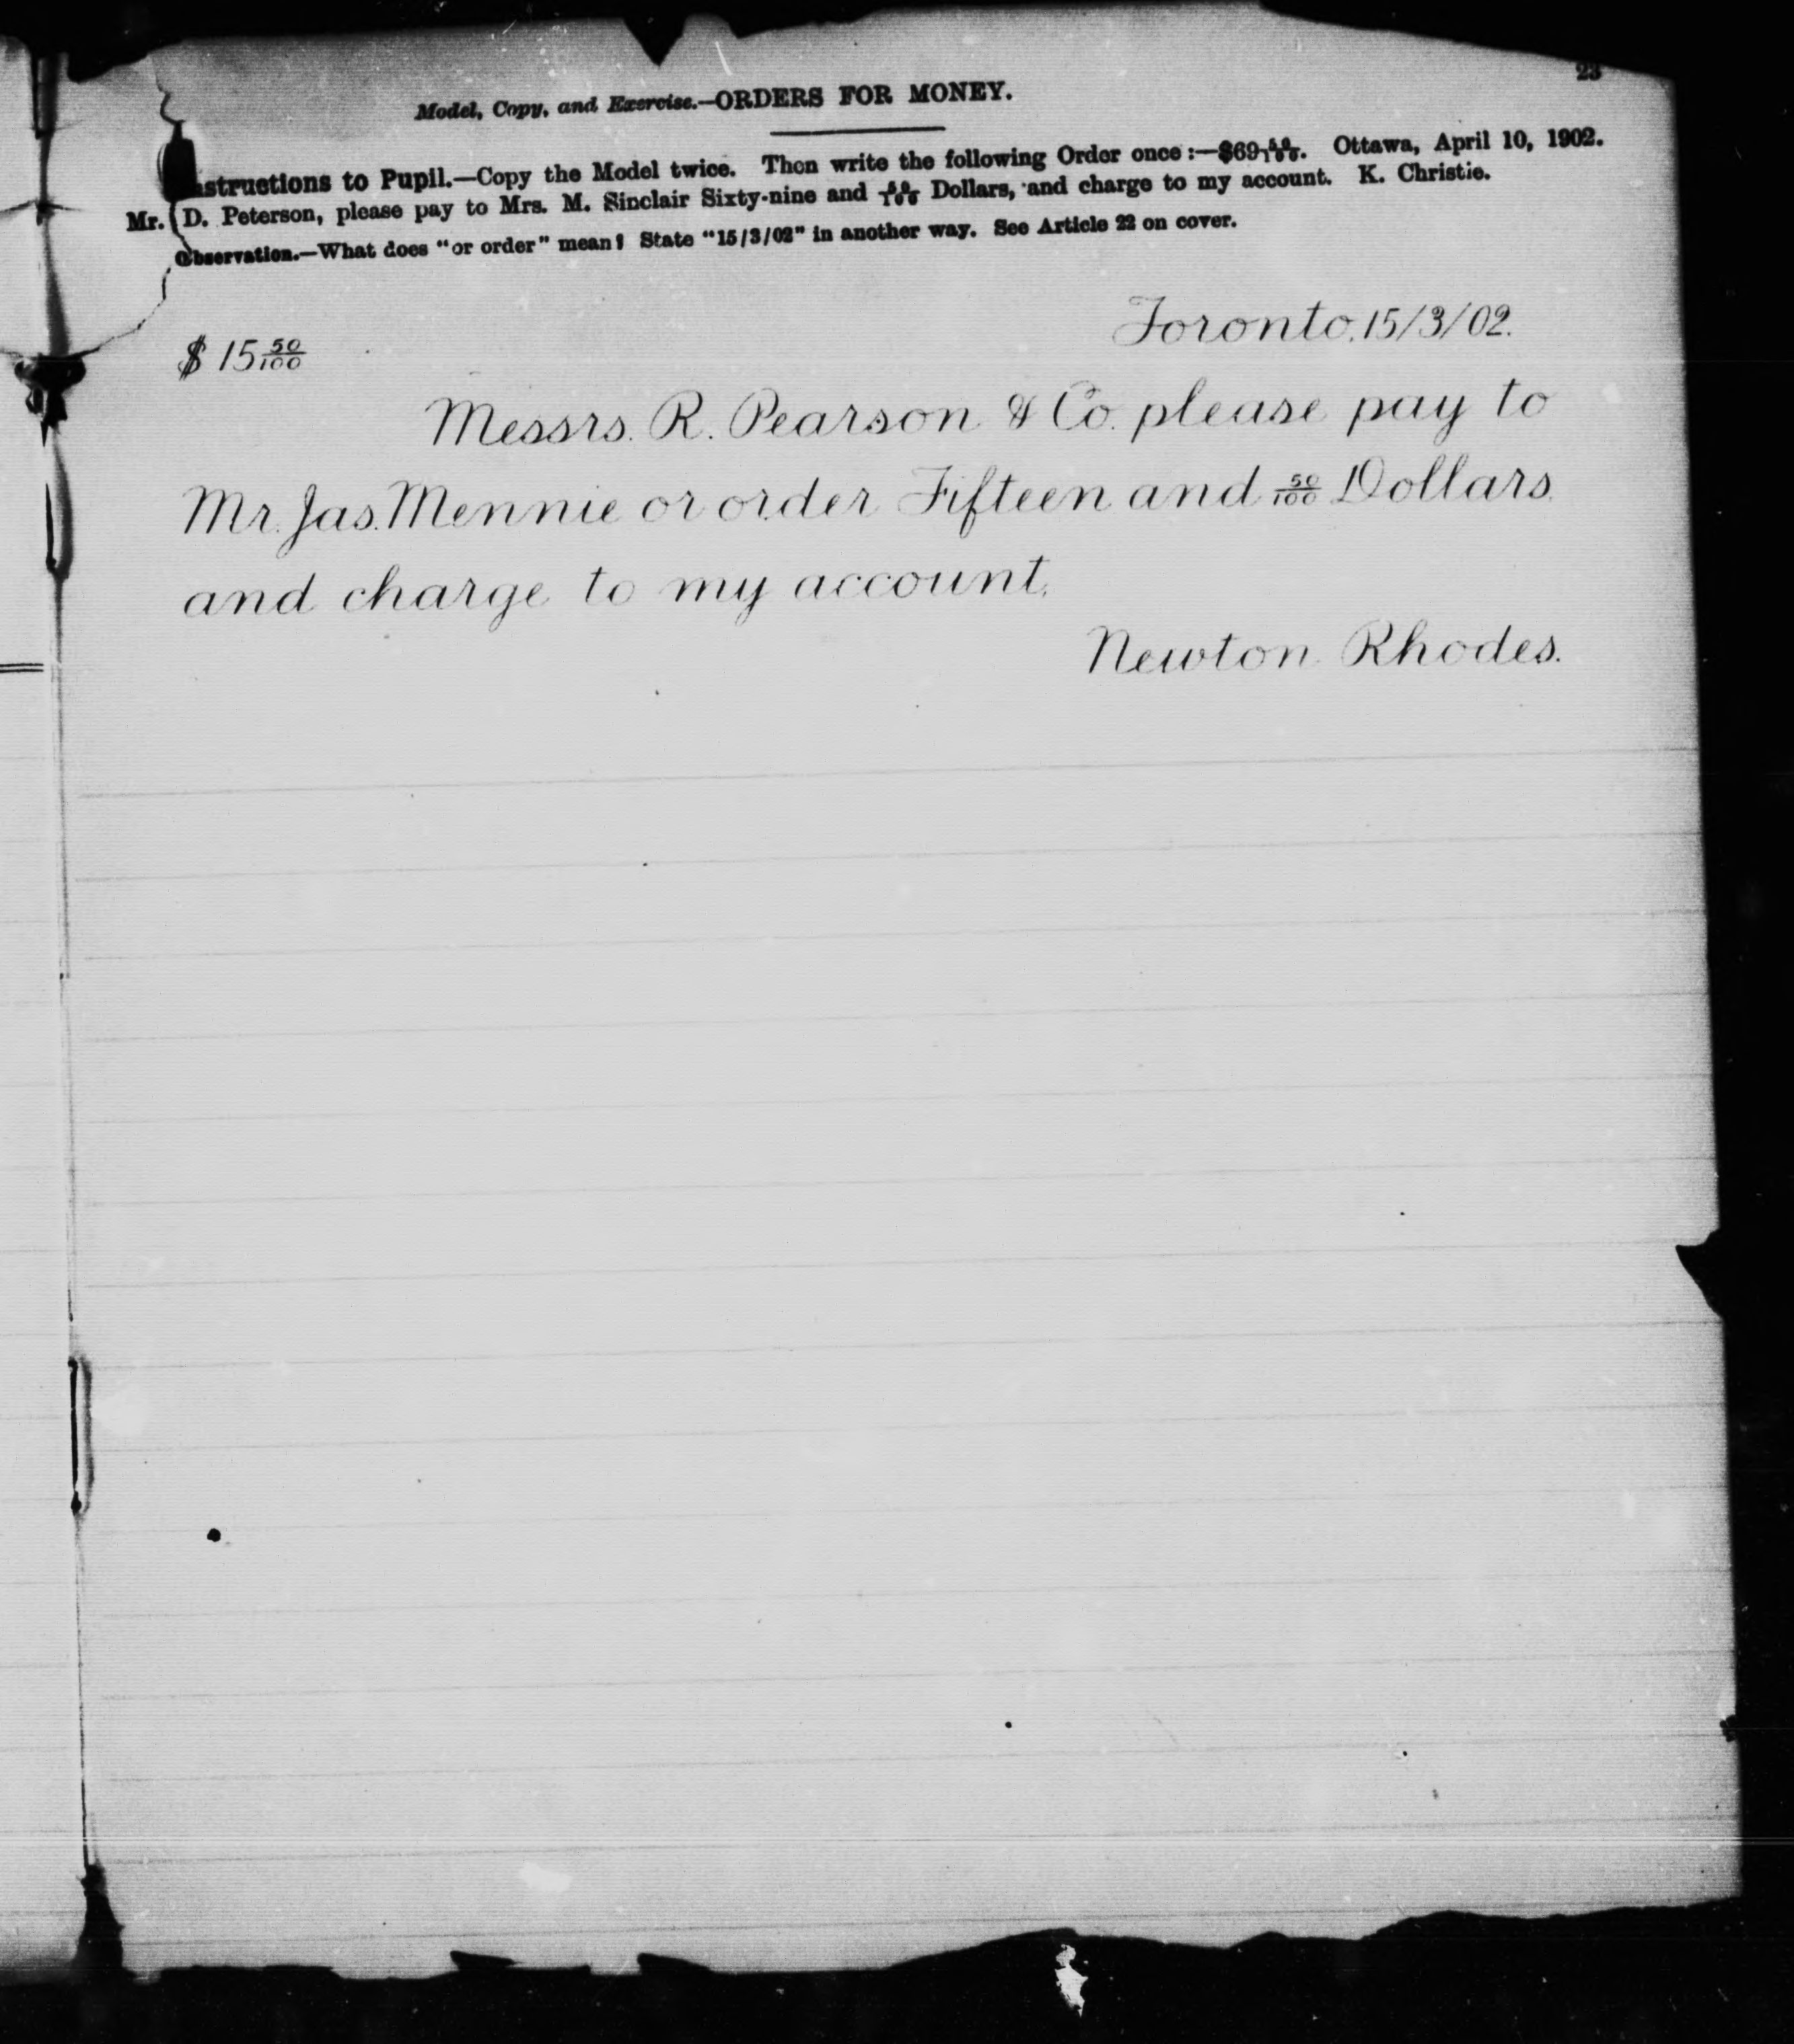 23
Model, Copy, and Exercise.—ORDERS FOR MONEY.
Instructions to Pupil.—Copy the Model twice. Then write the following Order once:—$69 50/100. Ottawa, April 10, 1902.
Mr. D. Peterson, please pay to Mrs. M. Sinclair Sixty-nine and 50/100 Dollars, and charge to my account. K. Christie.
Observation.—What does "or order" mean? State "15/3/02" in another way. See Article 22 on cover.
Toronto, 15/3/02.
$ 15 50/100
Messrs. R. Pearson & Co. please pay to
Mr. Jas. Mennie or order Fifteen and 50/100 Dollars,
and charge to my account.
Newton Rhodes.